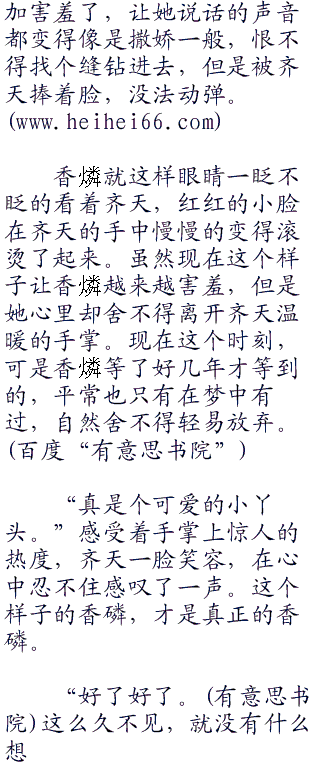 加害羞了，让她说话的声音
都变得像是撒娇一般，恨不
得找个缝钻进去，但是被齐
天捧着脸，没法动弹。
(www.heihei66.com)
香燐就这样眼睛一眨不
眨的看着齐天，红红的小脸
在齐天的手中慢慢的变得滚
烫了起来。虽然现在这个样
子让香燐越来越害羞，但是
她心里却舍不得离开齐天温
暖的手掌。现在这个时刻，
可是香燐等了好几年才等到
的，平常也只有在梦中有
过，自然舍不得轻易放弃。
(百度“有意思书院”)
“真是个可爱的小丫
头。”感受着手掌上惊人的
热度，齐天一脸笑容，在心
中忍不住感叹了一声。这个
样子的香磷，才是真正的香
磷。
“好了好了。(有意思书
院)这么久不见，就没有什么
想